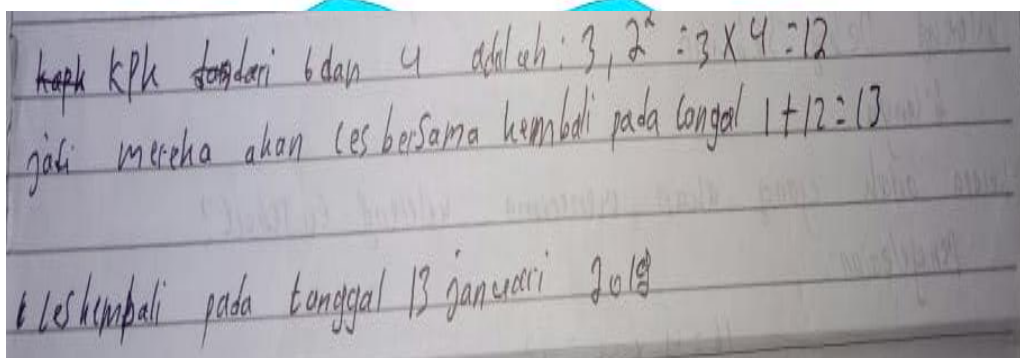 KPK dari 6 dan 4 adalah : 3, 2² = 3 x 4 = 12
jadi mereka akan les bersama kembali pada tonggal 1 + 12 = 13
les kembali pada tanggal 13 januari 2018